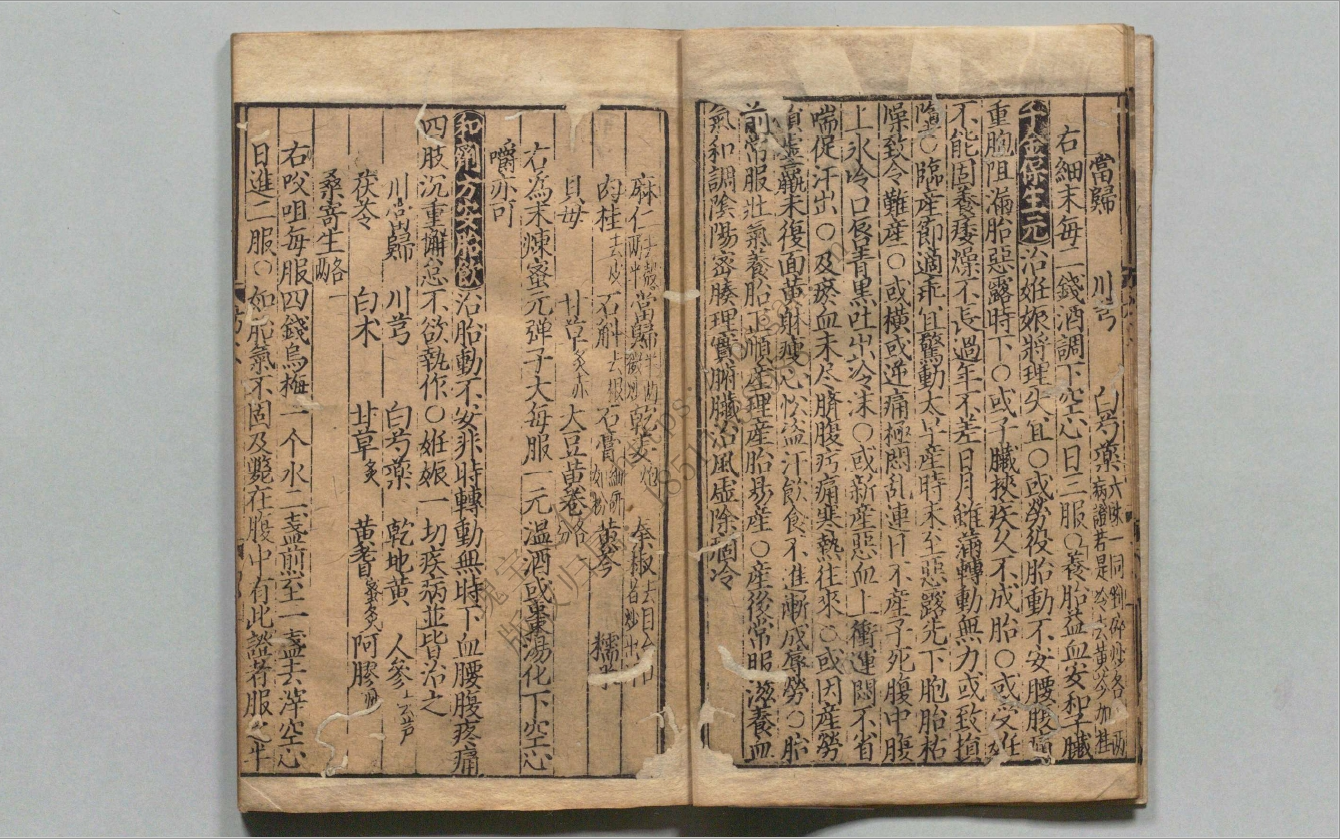 當歸　川芎　白芍藥六味一同㕮咀炒各一兩病證若是冷去黃芩加桂
右細末每二錢酒調下空心日二服○養胎益血安和子臟
千金保生元治姙娠將理失宜○或勞役胎動不安腰腹痛
重胞阻漏胎惡露時下○或子臟挾疾久不成胎○或受姙
不能固養痿燥不長過年不差日月雖滿轉動無力或致損
墮○臨產節適乖宜驚動太早產時未至惡露先下胞胎枯
燥致令難產○或橫或逆痛極悶乱連日不產子死腹中腹
上氷冷口唇青黑吐出冷沫○或新產惡血上衝連悶不省
喘促汗出○及瘀血未尽臍腹疞痛寒熱往來○或因產勞
損虛羸未復面黃躰瘦心忪盜汗飲食不進漸成辱勞○胎
前常服壯氣養胎正順產理產胎易產○產後常服滋養血
氣和調陰陽密腠理實腑臟治風虛除痼冷
麻仁　當歸　乾姜炮　秦椒
肉桂去皮　石斛去根　石膏細研　黃芩　糯
貝母　甘草炙　大豆黃卷
右為末煉蜜元弹子大每服一元温酒或棗湯化下空心
嚼亦可
和劑方安胎飲治胎動不安非時轉動無時下血腰腹疼痛
四肢沉重懈怠不欲執作○姙娠一切疾病並皆治之
川當歸　川芎　白芍藥　乾地黃　人參去芦
茯苓　白术　甘草炙　黃耆蜜炙　阿膠
桑寄生
右㕮咀每服四錢烏梅一个水二盞煎至一盞去滓空心
日進二服○如胎氣不固及斃在腹中有此證者服之平